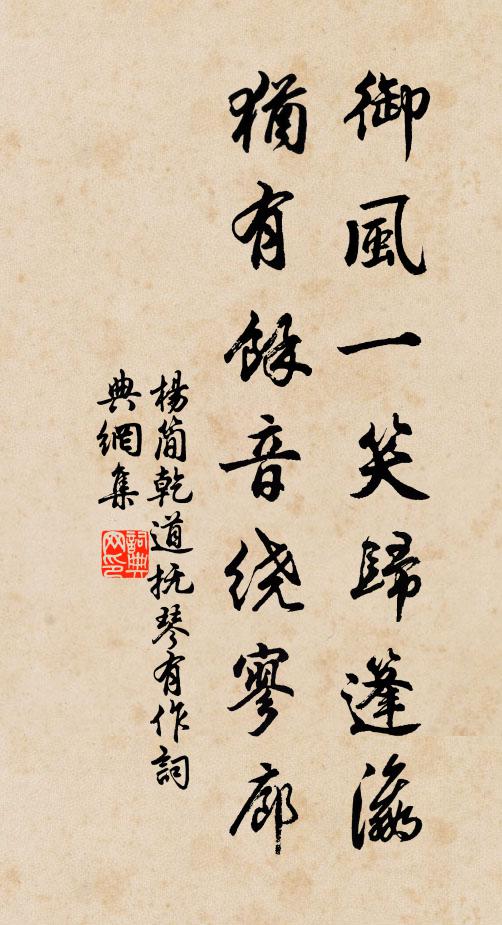 御風一笑歸蓬瀛
猶有餘音绕寥廊
楊简乾道抚琴有作詞
典網集
詞典
网印